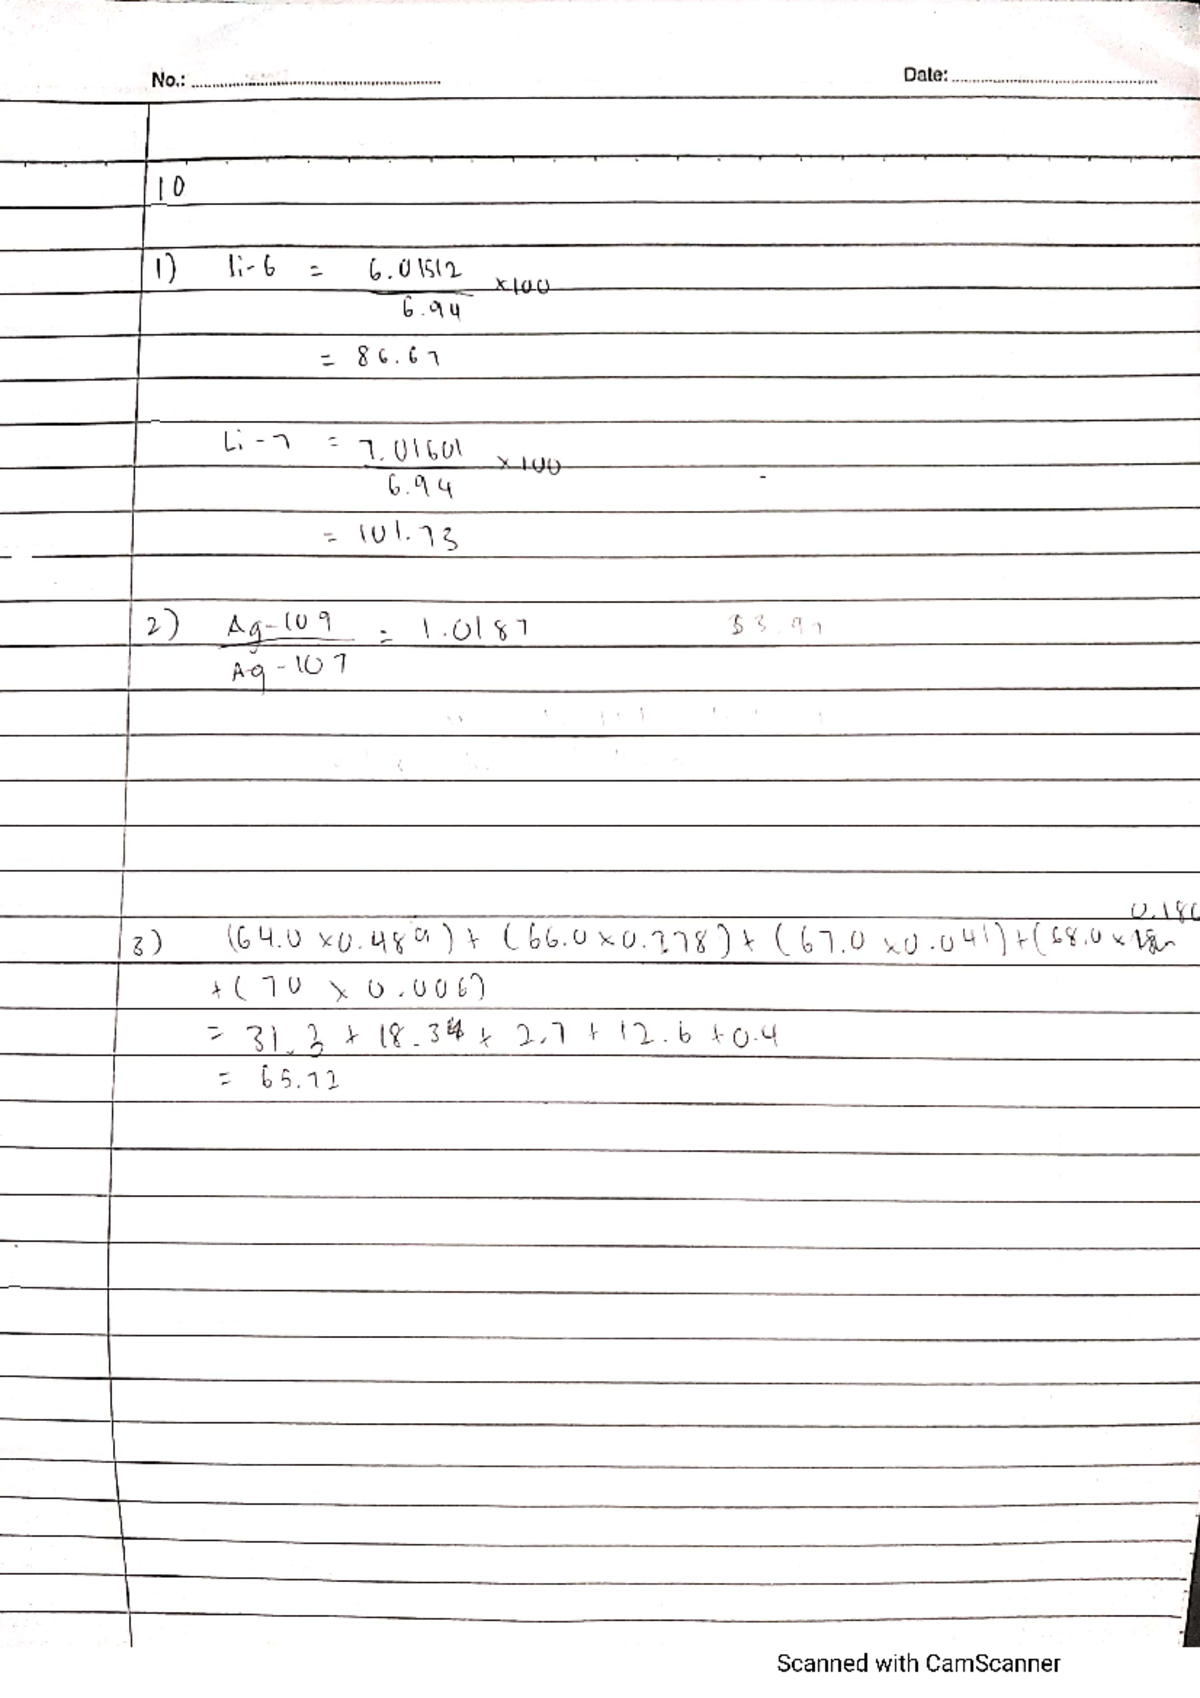 No.: Date:
10
1) li-6 = 6.01512 ×100
6.94
= 86.67
Li-7 = 7.01601 ×100
6.94
= 101.73
2) Ag-109 = 1.0187 53.97
Ag-107
0.186
3) (64.0 × 0.489) + (66.0 × 0.278) + (67.0 × 0.041) + (68.0 ×
+ (70 × 0.006)
= 31.3 + 18.34 + 2.7 + 12.6 + 0.4
= 65.72
Scanned with CamScanner